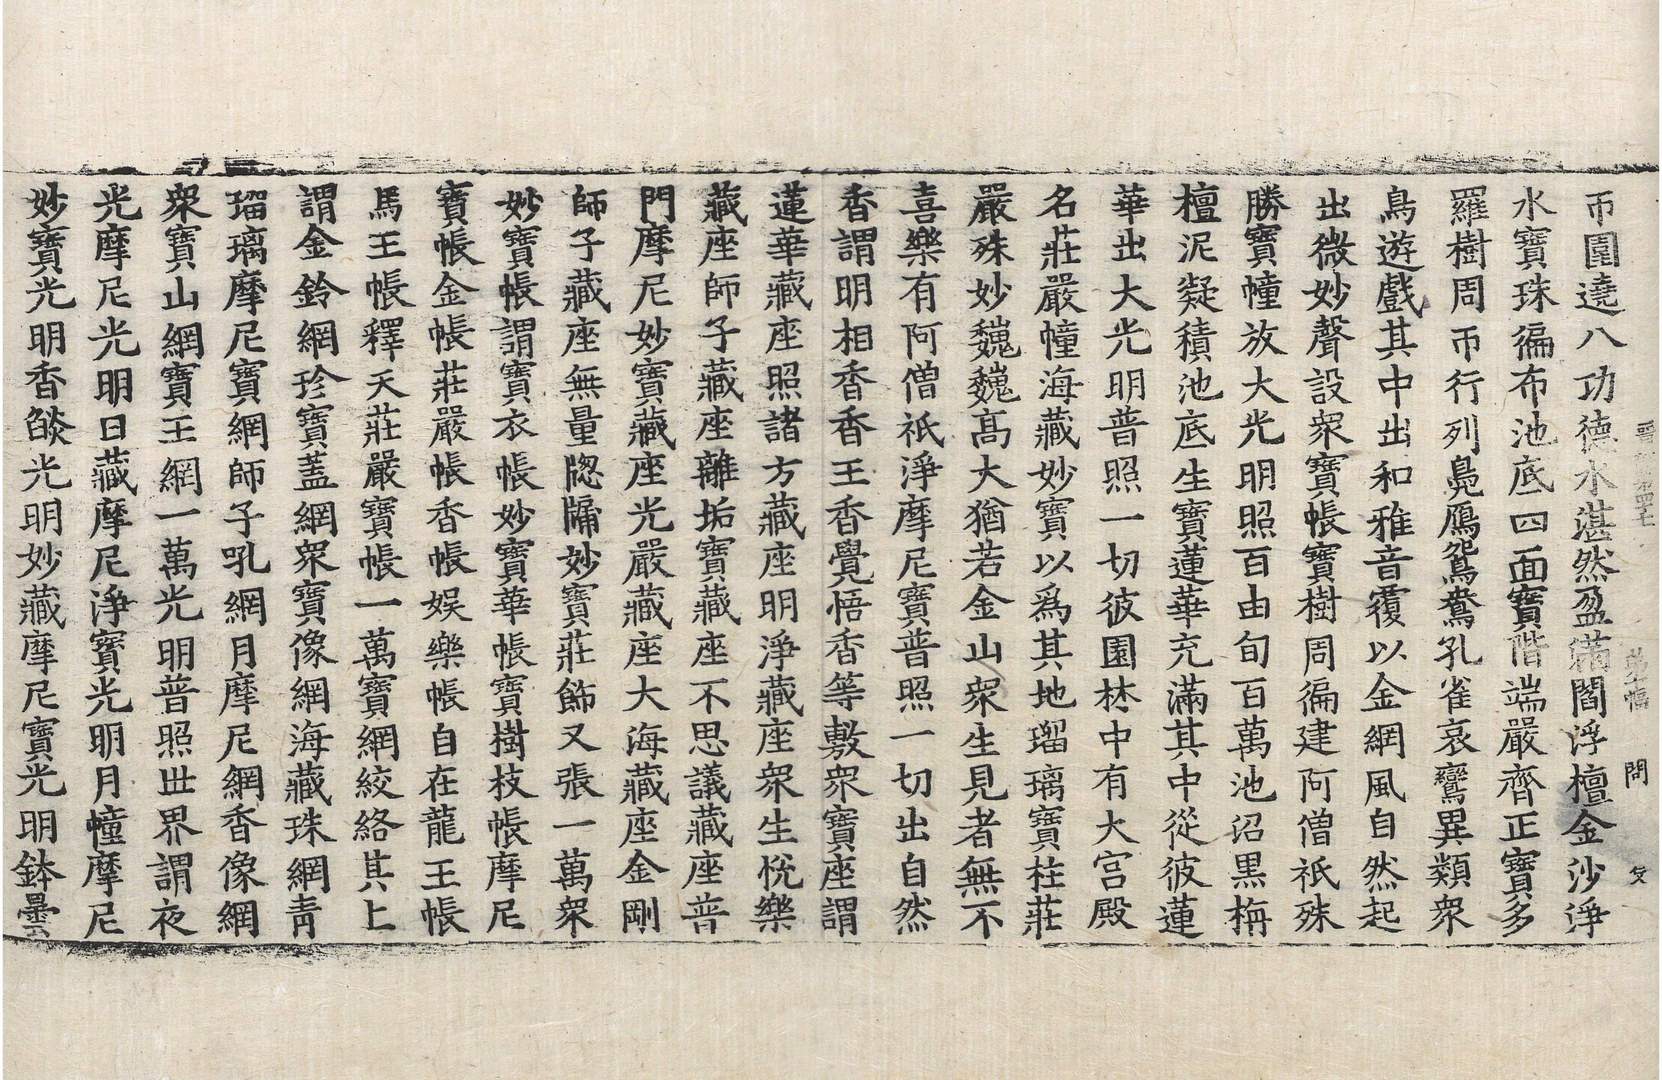 帀圍遶八功德水湛然盈滿閻浮檀金沙淨
水寶珠徧布池底四面寶階端嚴齊正寶多
羅樹周帀行列鳧鴈鴛鴦孔雀哀鸞異類衆
鳥遊戲其中出和雅音覆以金網風自然起
出微妙聲設衆寶帳寶樹周徧建阿僧祇殊
勝寶幢放大光明照百由旬百萬池沼黑栴
檀泥凝積池底生寶蓮華充滿其中從彼蓮
華出大光明普照一切彼園林中有大宮殿
名莊嚴幢海藏妙寶以爲其地瑠璃寶柱莊
嚴殊妙巍巍高大猶若金山衆生見者無不
喜樂有阿僧祇淨摩尼寶普照一切出自然
香謂明相香香王香覺悟香等敷衆寶座謂
蓮華藏座照諸方藏座明淨藏座衆生悅樂
藏座師子藏座離垢寶藏座不思議藏座普
門摩尼妙寶藏座光嚴藏座大海藏座金剛
師子藏座無量牎牖妙寶莊飾又張一萬衆
妙寶帳謂寶衣帳妙寶華帳寶樹枝帳摩尼
寶帳金帳莊嚴帳香帳娛樂帳自在龍王帳
馬王帳釋天莊嚴寶帳一萬寶網絞絡其上
謂金鈴網珍寶蓋網衆寶像網海藏珠網靑
瑠璃摩尼寶網師子吼網月摩尼網香像網
衆寶山網寶王網一萬光明普照世界謂夜
光摩尼光明日藏摩尼淨寶光明月幢摩尼
妙寶光明香燄光明妙藏摩尼寶光明鉢曇